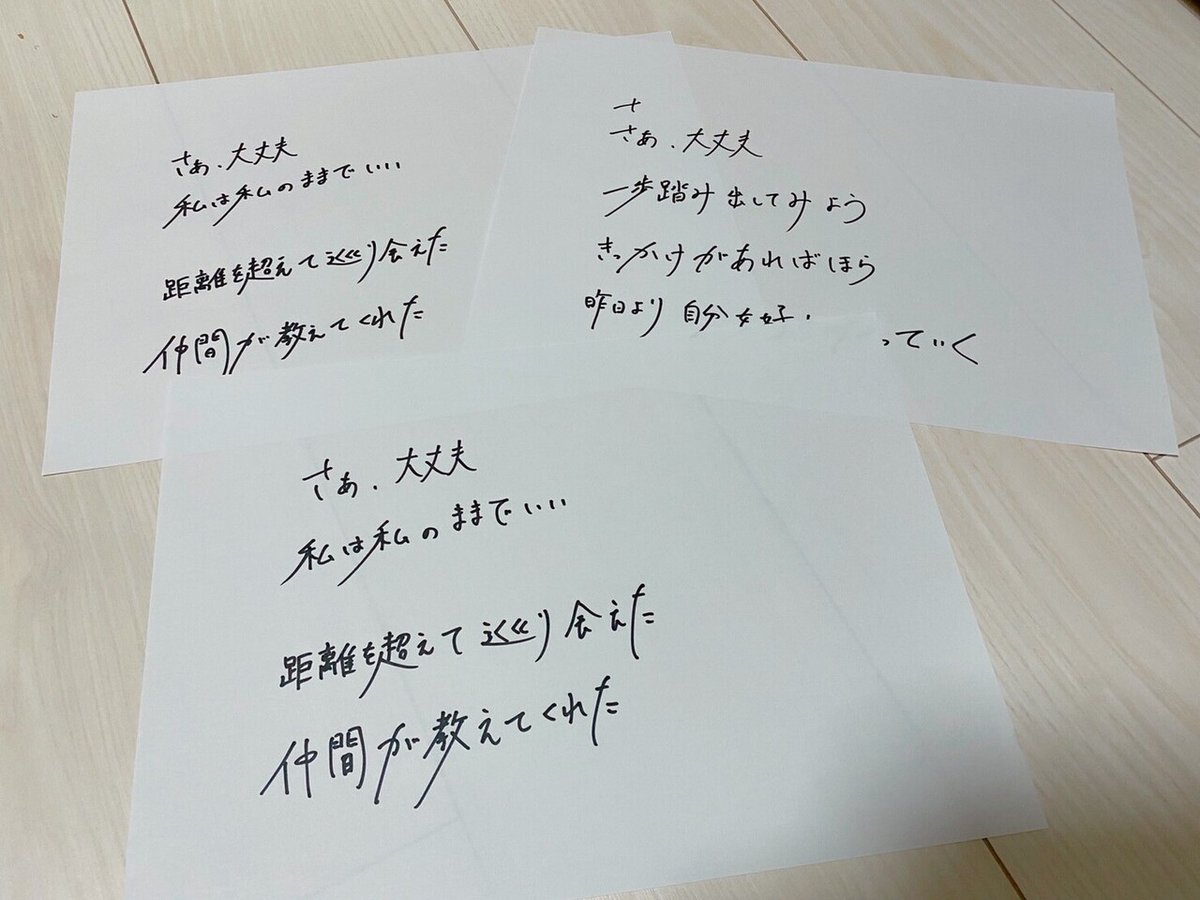 さぁ、大丈夫
私は私のままでいい
距離を超えて巡り会えた
仲間が教えてくれた
さ
さぁ、大丈夫
一歩踏み出してみよう
きっかけがあればほら
昨日より自分を好
っていく
さぁ、大丈夫
私は私のままでいい
距離を超えて巡り会えた
仲間が教えてくれた